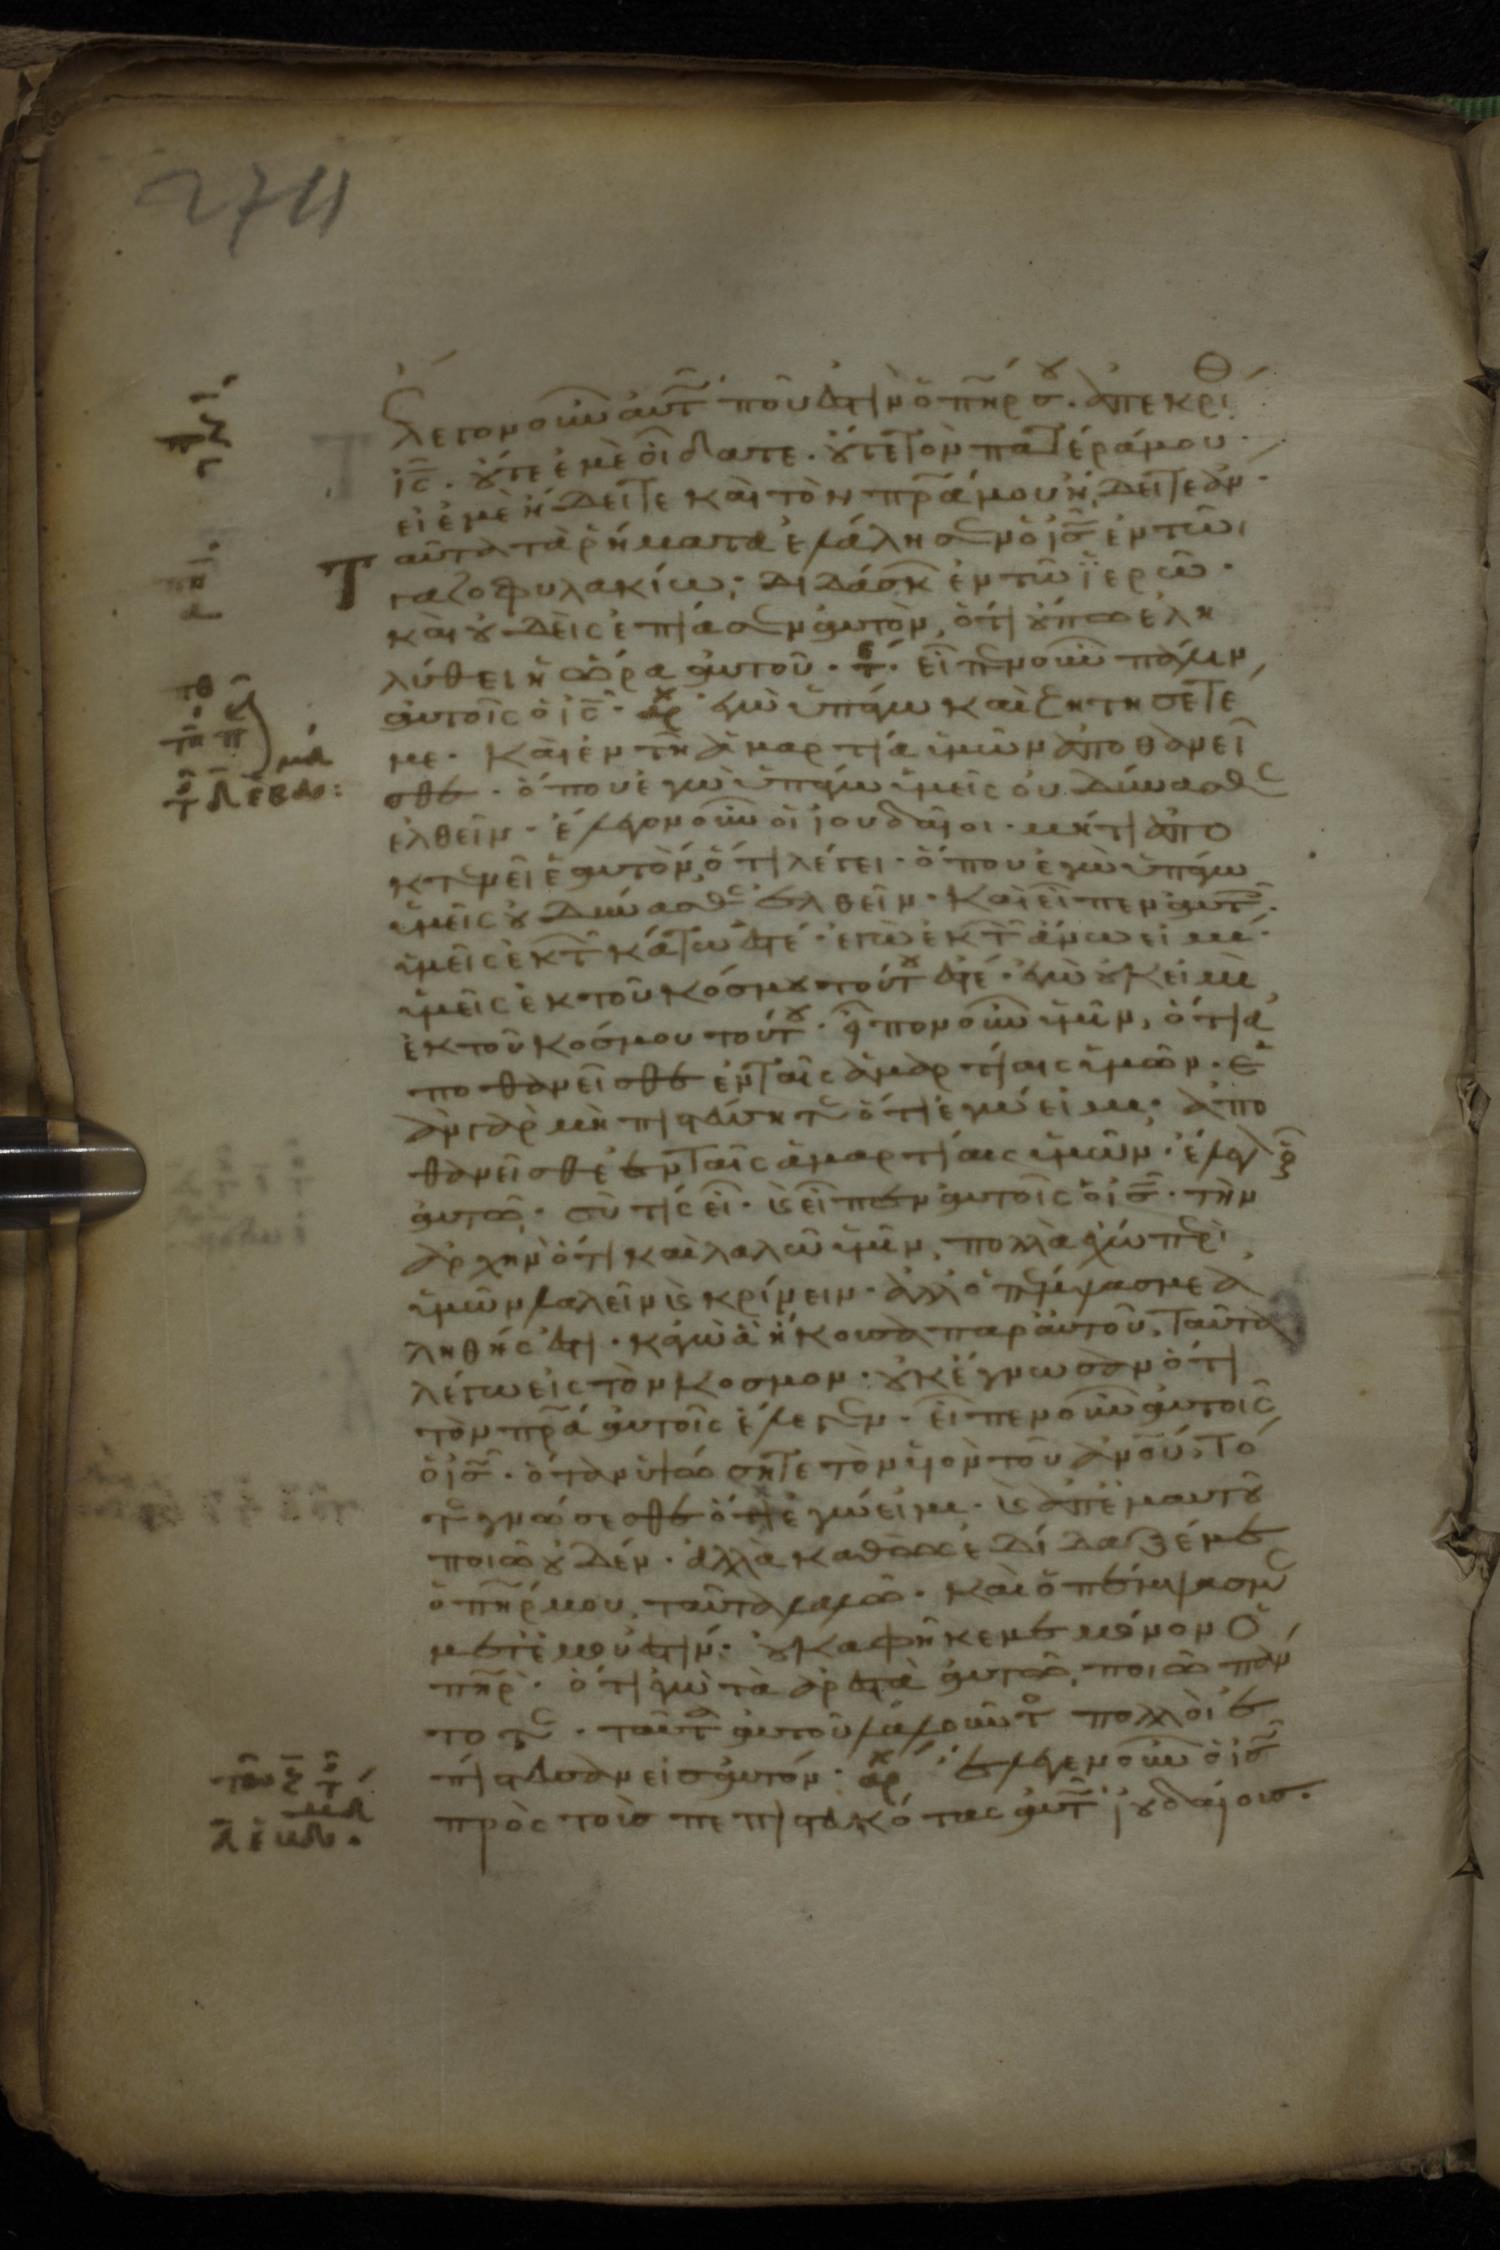 2711
Ἔλεγον οὖν αὐτῶ ποῦ ἐστὶν ὁ πῆρ σου. ἀπεκρίθ
ἰς. οὔτε ἐμὲ οἴδατε. οὔτε τὸν πατέρά μου.
εἰ ἐμὲ ἤδειτε καὶ τὸν πρᾶ μου ἤδειτε ἂν.
Ταῦτα τὰ ῥήματα ἐλάλησεν ὁ ἰς ἐν τῶ
γαζοφυλακίω, διδάσκων ἐν τῶ ἱερῶ.
καὶ οὐδεὶς ἐπίασεν αὐτὸν, ὅτι οὔπω ἐλη
λύθει ἡ ὥρα αὐτοῦ. τε. εἶπεν οὖν πάλιν
αὐτοῖς ὁ ἰς. ἀρχ ἐγὼ ὑπάγω καὶ ζητήσετέ
με. καὶ ἐν τῆ ἁμαρτία ὑμῶν ἀποθανεῖ
σθε. ὅπου ἐγὼ ὑπάγω ὑμεῖς οὐ δύνασθε
ἐλθεῖν. ἔλεγον οὖν οἱ ἰουδαῖοι. μήτι ἀπο
κτενεῖ ἑαυτὸν, ὅτι λέγει. ὅπου ἐγὼ ὑπάγω
ὑμεῖς οὐ δύνασθε ἐλθεῖν. καὶ εἶπεν αὐτοῖς.
ὑμεῖς ἐκ τῶν κάτω ἐστέ. ἐγὼ ἐκ τῶν ἄνω εἰμί.
ὑμεῖς ἐκ τοῦ κόσμου τούτου ἐστέ. ἐγὼ οὐκ εἰμὶ
ἐκ τοῦ κόσμου τούτου. εἶπον οὖν ὑμῖν, ὅτι ἀ
ποθανεῖσθε ἐν ταῖς ἁμαρτίαις ὑμῶν. ἐ
ὰν γὰρ μὴ πιστεύσητε ὅτι ἐγώ εἰμι. ἀπο
θανεῖσθε ἐν ταῖς ἁμαρτίαις ὑμῶν. ἔλεγον οὖν
αὐτῶ. σὺ τίς εἶ. καὶ εἶπεν αὐτοῖς ὁ ἰς. τὴν
ἀρχὴν ὅτι καὶ λαλῶ ὑμῖν, πολλὰ ἔχω περὶ
ὑμῶν λαλεῖν καὶ κρίνειν. ἀλλ ὁ πέμψας με ἀ
ληθής ἐστι. κἀγὼ ἃ ἤκουσα παρ αὐτοῦ, ταῦτα
λέγω εἰς τὸν κόσμον. οὐκ ἔγνωσαν ὅτι
τὸν πρᾶ αὐτοῖς ἔλεγεν. εἶπεν οὖν αὐτοῖς
ὁ ἰς. ὅταν ὑψώσητε τὸν υἱὸν τοῦ ἀνου, τό
τε γνώσεσθε ὅτι ἐγώ εἰμι. καὶ ἀπ ἐμαυτοῦ
ποιῶ οὐδέν. ἀλλὰ καθὼς ἐδίδαξέ με
ὁ πῆρ μου, ταῦτα λαλῶ. καὶ ὁ πέμψας με
μετ ἐμοῦ ἐστίν. οὐκ ἀφῆκέ με μόνον ὁ
πῆρ. ὅτι ἐγὼ τὰ ἀρεστὰ αὐτῶ, ποιῶ πάν
τοτε. ταῦτα αὐτοῦ λαλοῦντος πολλοὶ ἐ
πίστευσαν εἰς αὐτόν. ἀρχ ἔλεγεν οὖν ὁ ἰς
πρὸς τοὺς πεπιστευκότας αὐτῶ ἰουδαίους.